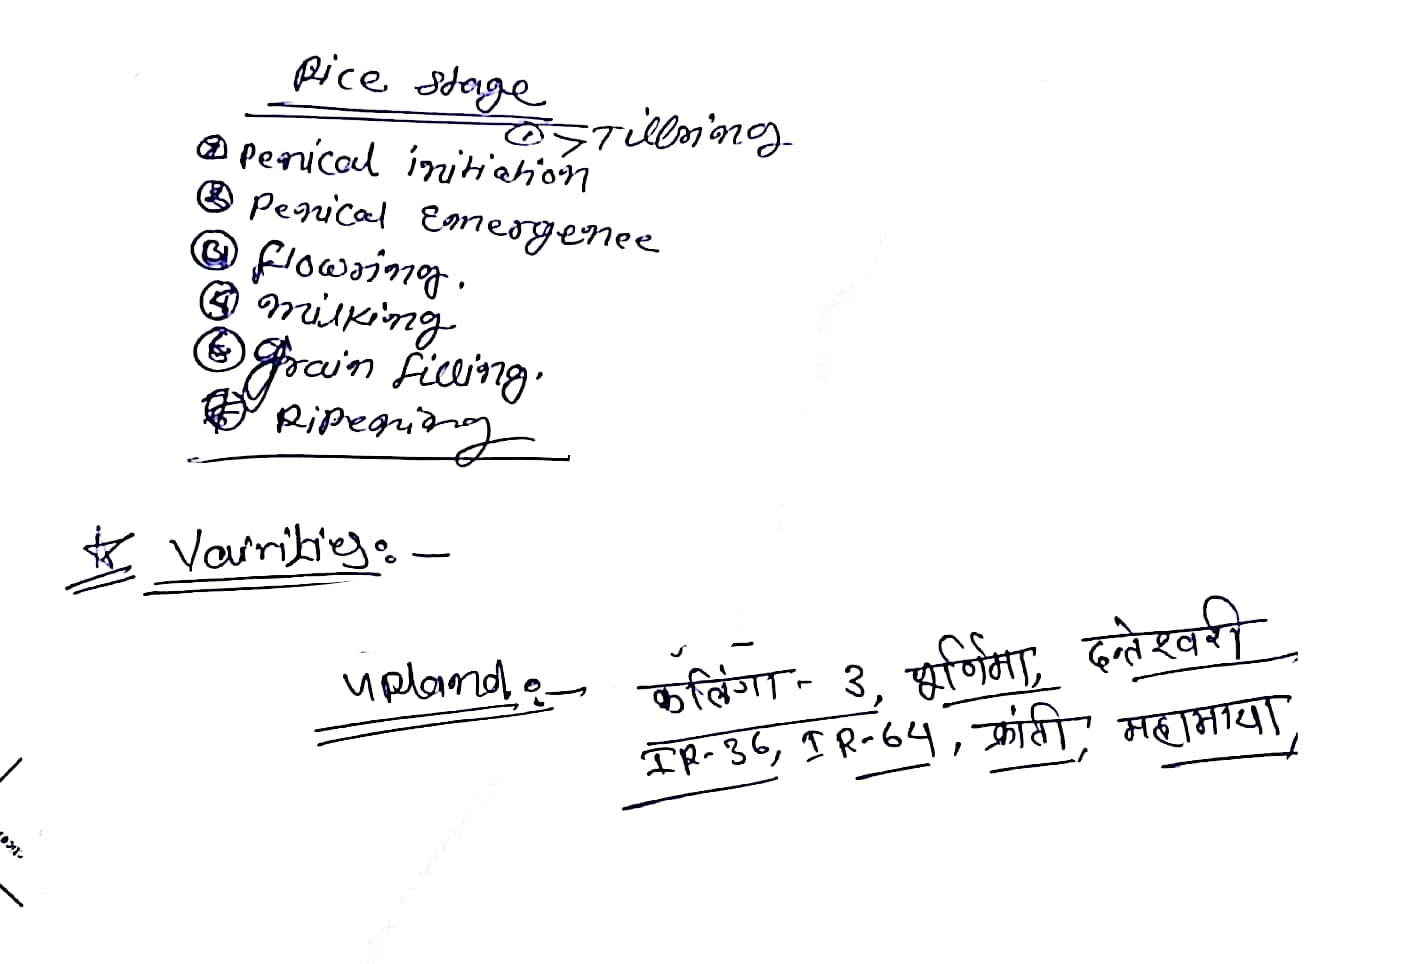 Rice stage
① > Tillring
② Penical initiation
③ Penical Emergenee
④ flowring.
⑤ milking
⑥ grain filling.
⑦ Ripening
☆ Varrities: —
upland: → कलिंगा - 3, पूर्णिमा, दन्तेश्वरी
IR-36, IR-64, क्रांती, महामाया,